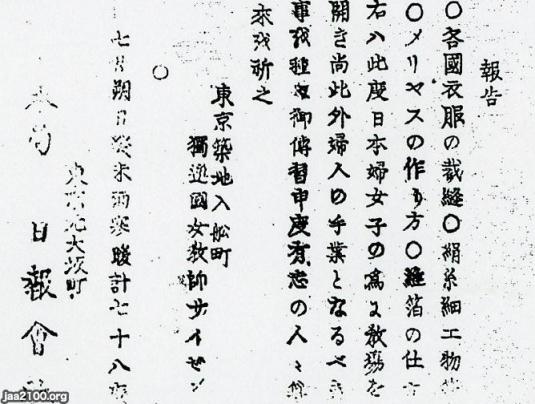 報告
〇各國衣服の裁縫〇絹糸細工物
〇メリヤスの作り方〇縫箔の仕方
右ハ此度日本婦女子の爲に教塲を
開き尚此外婦人の手業となるべき
事我種々御傳習申度有志の人々
來我祈之
東京築地入舩町
獨逸國女教師サイゼン
〇
七月朔日發米酒寒暖計七十八度
東京元大坂町
本局 日報會社
jaa2100.org